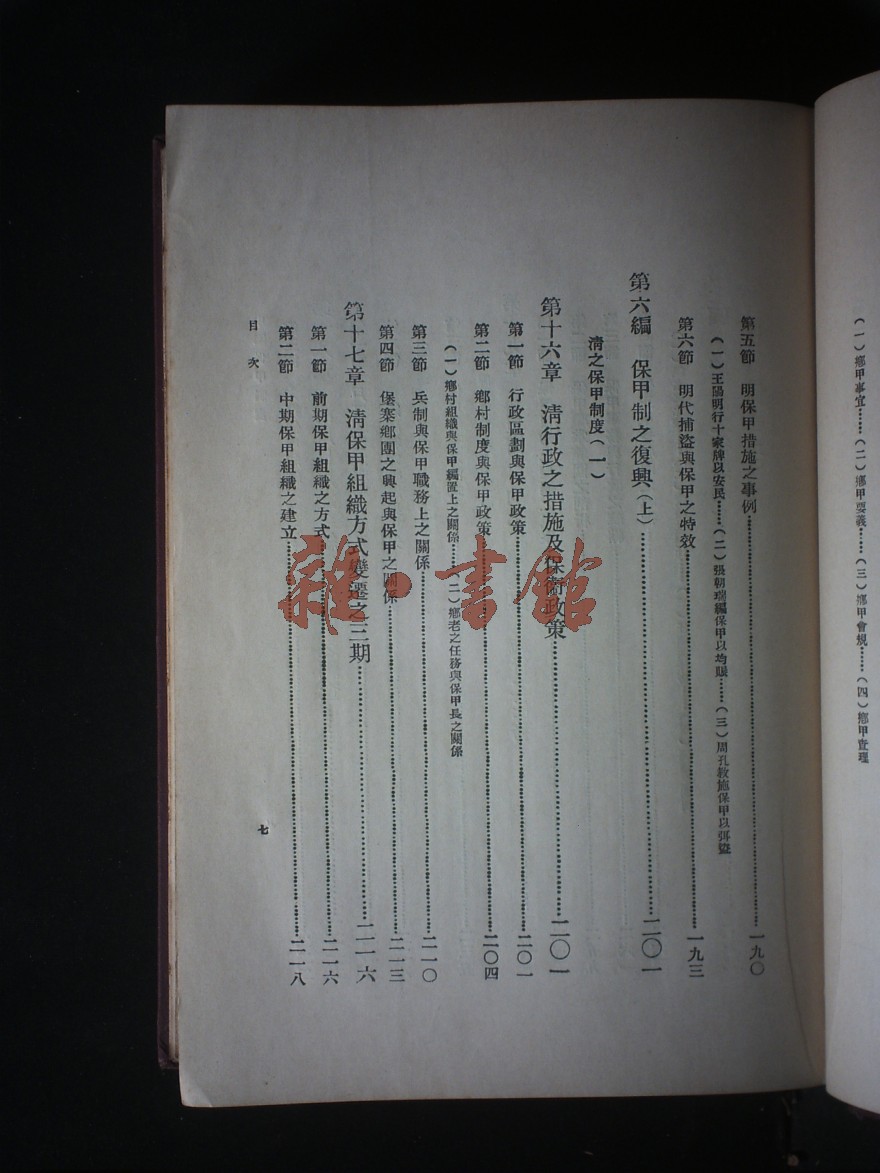 (一)鄉甲事宜……(二)鄉甲要義……(三)鄉甲會規……(四)鄉甲查理
第五節 明保甲措施之事例……一九〇
(一)王陽明行十家牌以安民……(二)張朝瑞編保甲以均賑……(三)周孔教施保甲以弭盜
第六節 明代捕盜與保甲之特效……一九三
第六編 保甲制之復興(上)……二〇一
清之保甲制度(一)
第十六章 清行政之措施及保衛政策……二〇一
第一節 行政區劃與保甲政策……二〇一
第二節 鄉村制度與保甲政策……二〇四
(一)鄉村組織與保甲編置上之關係……(二)鄉老之任務與保甲長之關係
第三節 兵制與保甲職務上之關係……二一〇
第四節 堡寨鄉團之興起與保甲之關係……二一三
第十七章 清保甲組織方式變遷之三期……二一六
第一節 前期保甲組織之方式……二一六
第二節 中期保甲組織之建立……二一八
目次 七
雜·書館